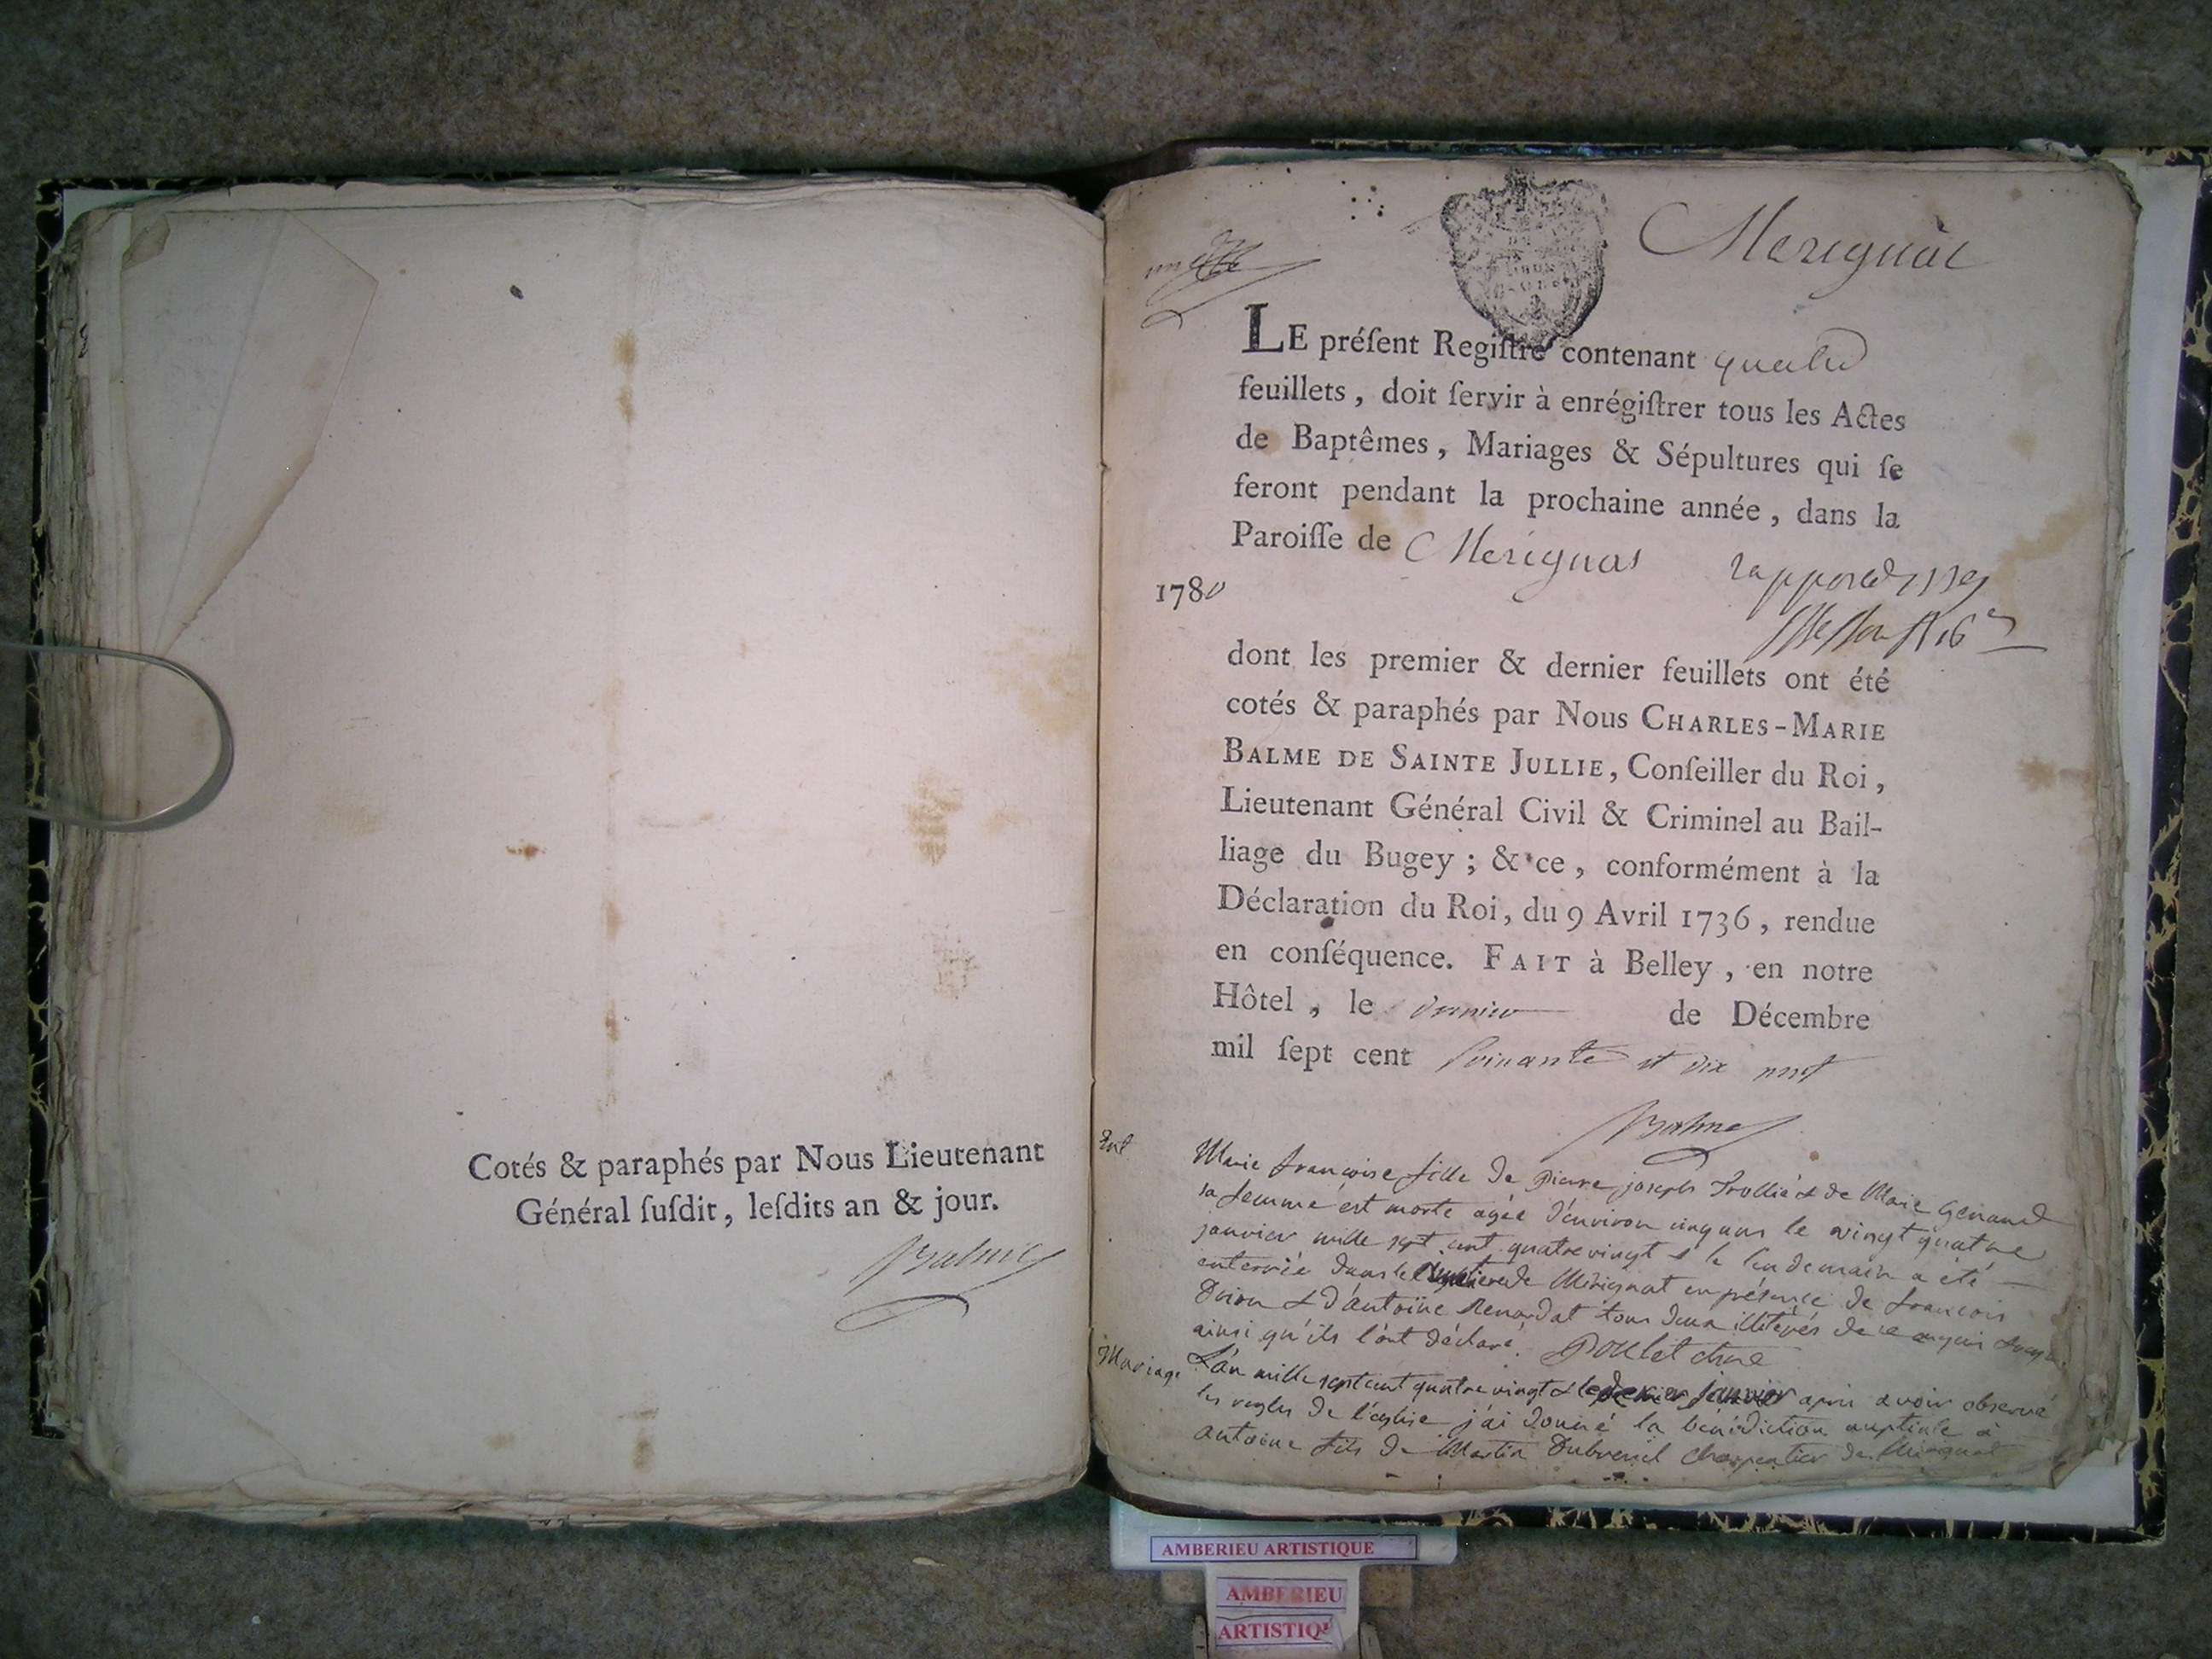 Cotés & paraphés par Nous Lieutenant
Général ſuſdit, leſdits an & jour.
Balme
Merignàt
LE préſent Regiſtre contenant quatre
feuillets, doit ſervir à enrégiſtrer tous les Actes
de Baptêmes, Mariages & Sépultures qui ſe
feront pendant la prochaine année, dans la
Paroiſſe de Merignat
1780
dont les premier & dernier feuillets ont été
cotés & paraphés par Nous CHARLES-MARIE
BALME DE SAINTE JULLIE, Conſeiller du Roi,
Lieutenant Général Civil & Criminel au Bail-
liage du Bugey; & ce, conformément à la
Déclaration du Roi, du 9 Avril 1736, rendue
en conſéquence. FAIT à Belley, en notre
Hôtel, le dernier de Décembre
mil ſept cent soixante et dix neuf
Balme
Ent
Marie françoise fille de Pierre joseph Trollié & de Marie Genand
sa femme est morte agée d'environ cinq ans le vingt quatre
janvier mille sept cent quatre vingt & le lendemain a été
enterrée dans le cimetiere de Mérignat en présence de françois
& d'antoine Renardat tous deux illiterés de ce enquis
ainsi qu'ils l'ont déclaré. Poulet curé
Mariage
L'an mille sept cent quatre vingt & le janvier après avoir observé
les regles de l'église j'ai donné la bénédiction nuptiale à
antoine fils de Martin Dubreuil charpentier de Merignat
AMBERIEU ARTISTIQUE
AMBERIEU
ARTISTIQ